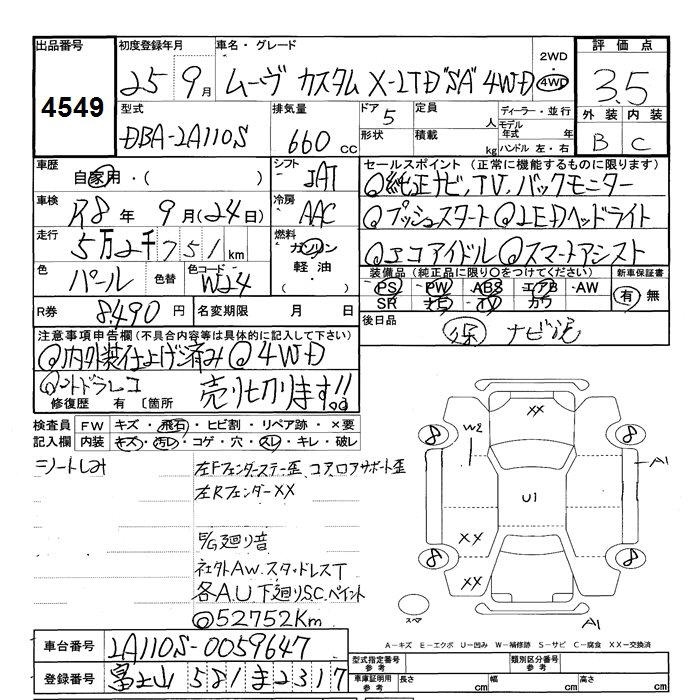 出品番号 初度登録年月 車名・グレード 2WD 評価点
4549 25 9月 ムーヴ カスタム X-LTD "SA" 4WD 4WD 3.5
型式 排気量 ドア 定員 ディーラー・並行 外装 内装
DBA-LA110S 660cc 5 人 モデル年式 年
形状 積載 kg ハンドル 左・右 B C
車歴 自家用・( ) シフト IAT セールスポイント(正常に機能するものに限ります)
車検 R8年 9月(24日) 冷房 AAC ◎純正ナビ,TV,バックモニター
◎プッシュスタート ◎LEDヘッドライト
走行 5万2千751km 燃料 ガソリン ◎エコアイドル ◎スマートアシスト
色 パール 色替 色コード W24 軽油・
装備品(純正品に限り○をつけてください) 新車保証書
PS PW ABS エアB ・AW 有 無
SR ナビ TV カワ
R券 8,490円 名変期限 月 日 後日品 保 ナビ説
注意事項申告欄(不具合内容等は具体的に記入して下さい)
◎内外装仕上げ済み ◎4WD
◎ドラレコ 売り切ります!!
修復歴 有〔箇所
検査員 FW キズ・飛石・ヒビ割・リペア跡・×要
記入欄 内装 キズ・汚レ・コゲ・穴・スレ・キレ・破レ
シートしみ 左Fフェンダーステー歪 コアロアサポート歪
左Rフェンダー××
E/G廻り音
社外AW.スタッドレスT
各A.U 下廻りS.C.ペイント
◎52752Km
×× 8 8 W2 A1 U1 ×× 8 8 ×× スペア A1
A-キズ E-エクボ U-凹み W-補修跡 S-サビ C-腐食 XX-交換済
車台番号 LA110S-0059647 型式指定番号 参考 類別区分番号 参考
登録番号 富士山 581 ま 2317 車庫証明用 参考 長さ cm 幅 cm 高さ cm